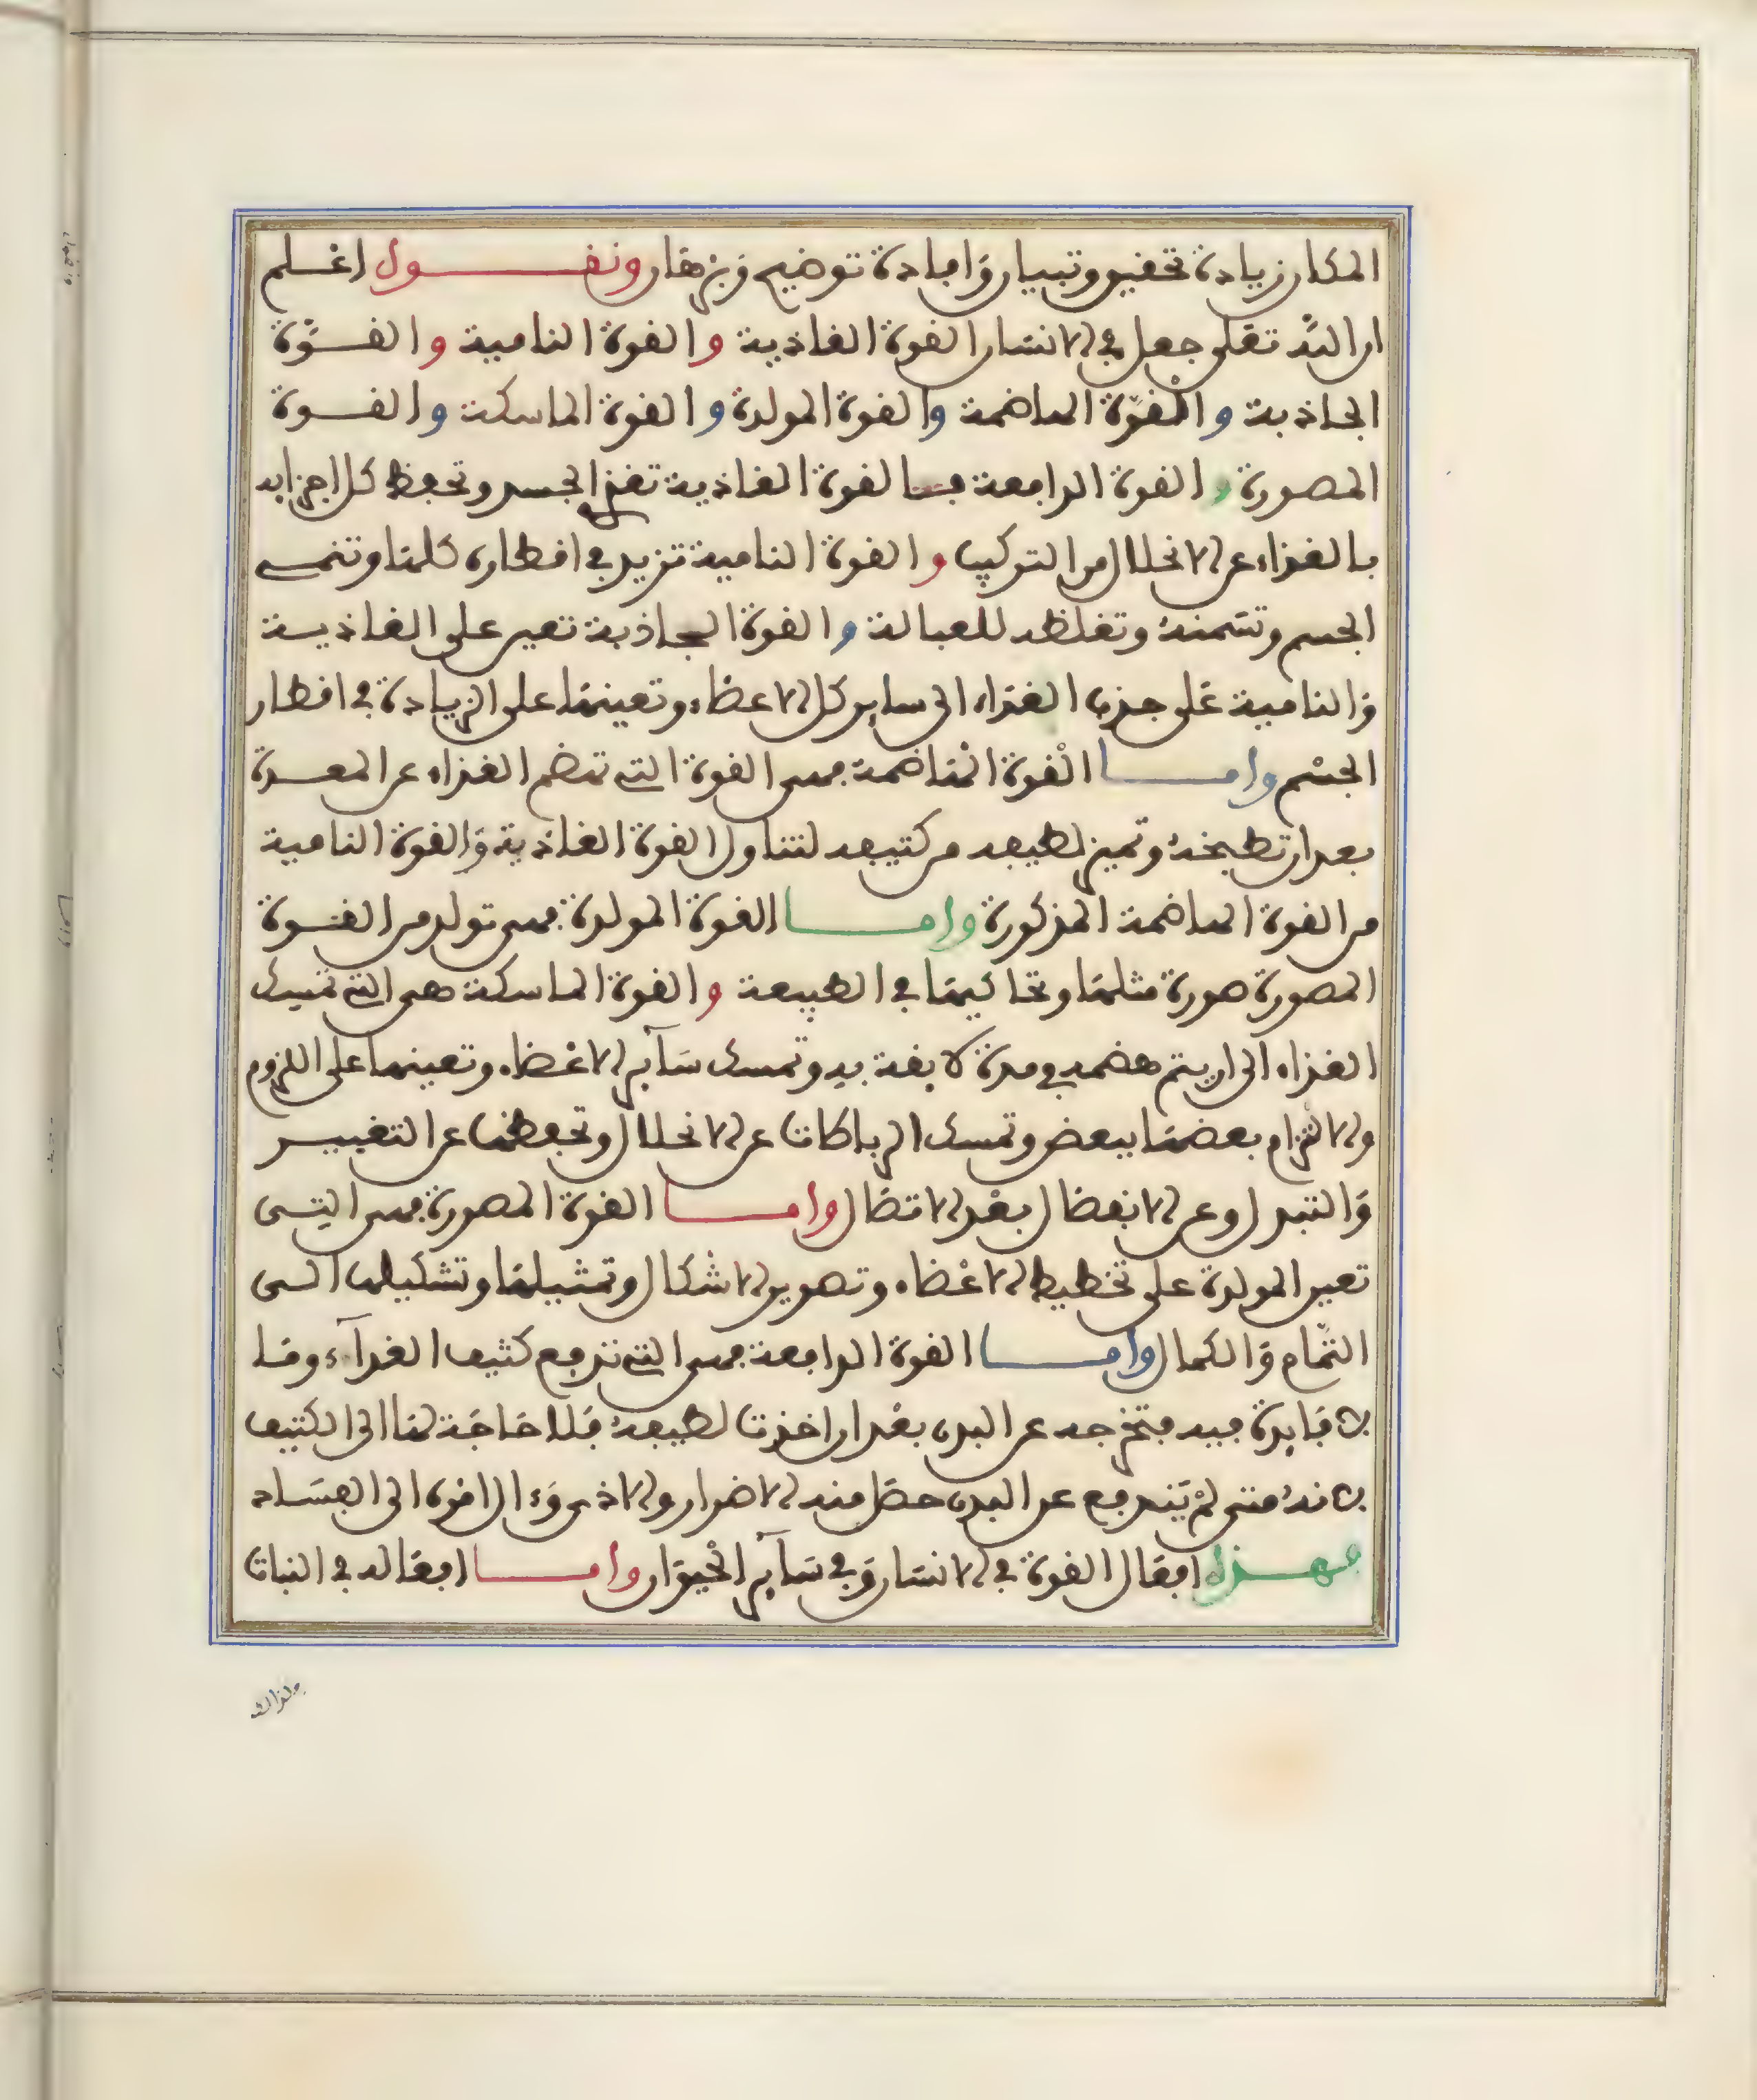 المكان زيادة تحقيق وتبيان وافادة توضيح وبرهان ونقول اعلم
ان الله تعلى جعل في الانسان القوة الغاذية والقوة النامية والقوة
الجاذبة والقوة الهاضمة والقوة المولدة والقوة الماسكة والقوة
المصورة والقوة الدافعة فالقوة الغاذية تغذي الجسد وتحفظ كل اجزايه
بالغذاء عن الانحلال من التركيب والقوة النامية تزيد في اقطاره كلها وتنمي
الجسم وتسمنه وتغلظه للعبالة والقوة الجاذبة تعين على الغاذية
والنامية على جذب الغذاء الى ساير كل الاعضاء وتعينها على الزيادة في اقطار
الجسم واما القوة الهاضمة فهي القوة التي تهضم الغذاء عن المعدة
بعد ان تطبخه وتميز لطيفه من كثيفه لتناول القوة الغاذية والقوة النامية
من القوة الهاضمة المذكورة واما القوة المولدة فهي تولد من القوة
المصورة صورة مثلها وتحاكيها في الطبيعة والقوة الماسكة هي التي تمسك
الغذاء الى ان يتم هضمه في مدة لايقة به وتمسك سآير الاعضاء وتعينها على اللزوم
والالتزام بعضها ببعض وتمسك الرباطات عن الانحلال وتحفظها عن التغيير
والتبدل وعن الانفصال بعد الاتصال واما القوة المصورة فهي التي
تعين المولدة على تخطيط الاعضاء وتصوير الاشكال وتمثيلها وتشكيلها الى
التمام والكمال واما القوة الدافعة فهي التي تدفع كثيف الغذآء وما
لا فايدة فيه فتخرجه عن البدن بعد ان اخذت لطيفه فلا حاجة لها الى الكثيف
لانه متى لم يندفع عن البدن حصل منه الاضرار والاذى وءال امره الى الفساد
فهذه افعال القوة في الانسان وفي سآير الحيوان واما افعاله في النبات